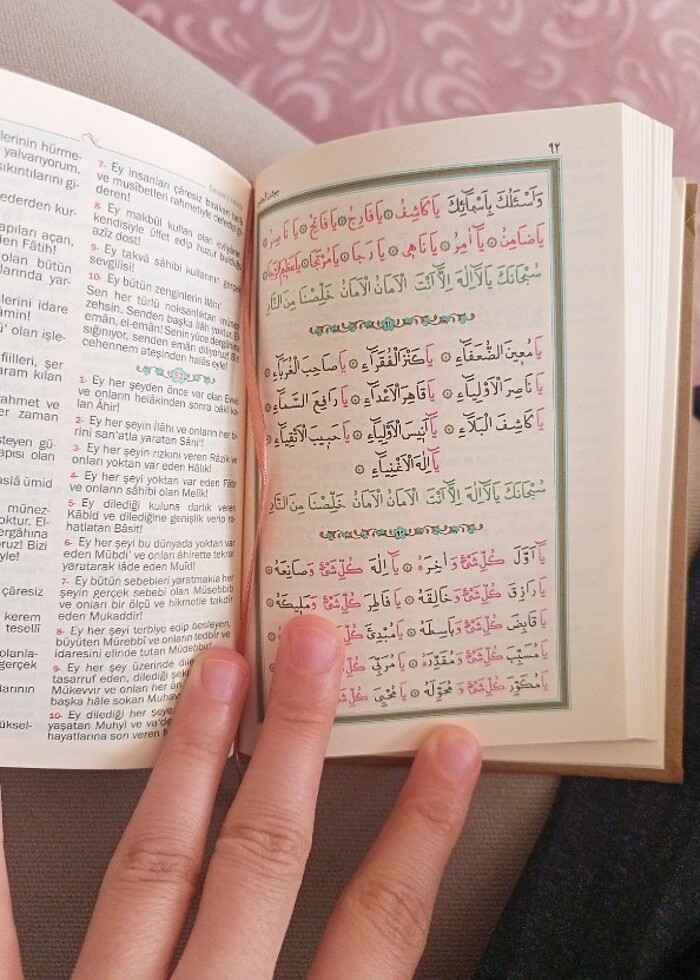 lerinin hürme-
yalvarıyorum,
sıkıntılarını gi-
ederden kur-
apıları açan,
den Fâtih!
olan bütün
larında yar-
lerini idare
âmin!
û' olan işle-
fiilleri, şer
aram kılan
rahmet ve
er zaman
steyen gü-
apısı olan
aslâ ümid
münez-
oktur. El-
ergâhına
oruz! Bizi
yle!
çâresiz
kerem
teselli
olanla-
gerçek
darının
üksel-
7- Ey insanları çâresiz bırakan belâ
ve musîbetleri rahmetiyle defedip gi-
deren!
8- Ey makbûl kulları olan evliyânın
kendisiyle ülfet edip huzur bulduğu
azîz dost!
9- Ey takvâ sâhibi kullarının gerçek
sevgilisi!
10- Ey bütün zenginlerin İlâhı!
Sen her türlü noksanlıktan münez-
zehsin. Senden başka ilâh yoktur. El-
emân, el-emân! Senin yüce dergâhına
sığınıyor, senden emân diliyoruz! Bizi
cehennem ateşinden halâs eyle!
1- Ey her şeyden önce var olan Evvel
ve onların helâkinden sonra bâkî ka-
lan Âhir!
2- Ey her şeyin İlâhı ve onların her bi-
rini san'atla yaratan Sâni'!
3- Ey her şeyin rızkını veren Râzık ve
onları yoktan var eden Hâlık!
4- Ey her şeyi yoktan var eden Fâtır
ve onların sâhibi olan Melîk!
5- Ey dilediği kuluna darlık veren
Kâbid ve dilediğine genişlik verip ra-
hatlatan Bâsit!
6- Ey her şeyi bu dünyada yoktan var
eden Mübdi' ve onları âhirette tekrar
yaratarak iâde eden Muîd!
7- Ey bütün sebebleri yaratmakla her
şeyin gerçek sebebi olan Müsebbib
ve onları bir ölçü ve hikmetle takdir
eden Mukaddir!
8- Ey her şeyi terbiye edip besleyen,
büyüten Mürebbî ve onların tedbir ve
idaresini elinde tutan Müdebbir!
9- Ey her şey üzerinde dile
tasarruf eden, dilediği şek
Mükevvir ve onları her an
başka hâle sokan Muhav
10- Ey dilediği her şeye
yaşatan Muhyî ve va'de
hayatlarına son veren M
٩٢
وَاَسْئَلُكَ بِاَسْمَٓائِكَ يَا كَاشِفُ ۞ يَا فَارِجُ ۞ يَا فَاتِحُ ۞ يَا نَاصِرُ ۞
يَا ضَامِنُ ۞ يَٓا اٰمِرُ ۞ يَا نَاهِى ۞ يَا رَجَا ۞ يَا مُرْتَجَا ۞ يَا عَظِيمَ الرَّجَا ۞
سُبْحَانَكَ يَا لَٓا اِلٰهَ اِلَّٓا اَنْتَ الْاَمَانُ الْاَمَانُ خَلِّصْنَا مِنَ النَّارِ
يَا مُعِينَ الضُّعَفَٓاءِ ۞ يَا كَنْزَ الْفُقَرَٓاءِ ۞ يَا صَاحِبَ الْغُرَبَٓاءِ ۞
يَا نَاصِرَ الْاَوْلِيَٓاءِ ۞ يَا قَاهِرَ الْاَعْدَٓاءِ ۞ يَا رَافِعَ السَّمَٓاءِ ۞
يَا كَاشِفَ الْبَلَٓاءِ ۞ يَٓا اَنِيسَ الْاَوْلِيَٓاءِ ۞ يَا حَبِيبَ الْاَتْقِيَٓاءِ ۞
يَٓا اِلٰهَ الْاَغْنِيَٓاءِ ۞
سُبْحَانَكَ يَا لَٓا اِلٰهَ اِلَّٓا اَنْتَ الْاَمَانُ الْاَمَانُ خَلِّصْنَا مِنَ النَّارِ
يَٓا اَوَّلَ كُلِّ شَىْءٍ وَاٰخِرَهُ ۞ يَٓا اِلٰهَ كُلِّ شَىْءٍ وَصَانِعَهُ ۞
يَا رَازِقَ كُلِّ شَىْءٍ وَخَالِقَهُ ۞ يَا فَاطِرَ كُلِّ شَىْءٍ وَمَلِيكَهُ ۞
يَا قَابِضَ كُلِّ شَىْءٍ وَبَاسِطَهُ ۞ يَا مُبْدِئَ كُلِّ
يَا مُسَبِّبَ كُلِّ شَىْءٍ وَمُقَدِّرَهُ ۞ يَا مُرَبِّىَ كُلِّ
يَا مُكَوِّرَ كُلِّ شَىْءٍ وَمُحَوِّلَهُ ۞ يَا مُحْيِىَ كُلِّ شَىْءٍ